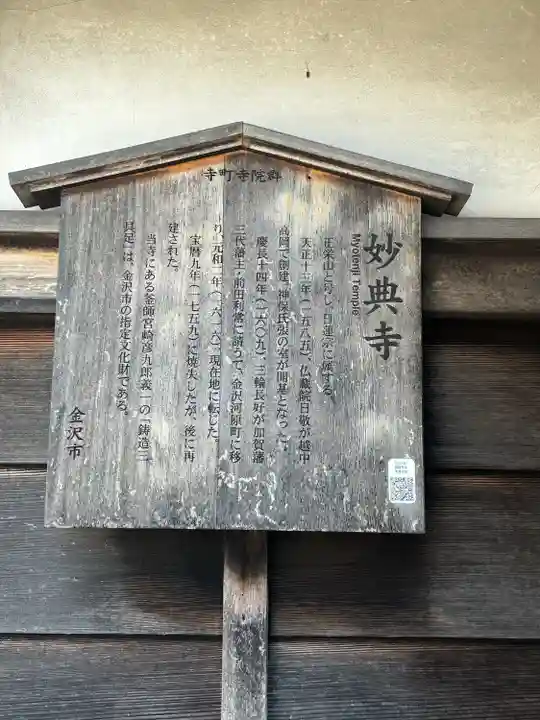 寺町寺院群
妙典寺
Myotenji Temple
正栄山と号し、日蓮宗に属する。
天正十三年（一五八五）、仏龕院日敬が越中
高岡で創建、神保氏張の室が開基となった。
慶長十四年（一六〇九）、三輪長好が加賀藩
三代藩主・前田利常に請うて、金沢河原町に移
り、元和二年（一六一六）、現在地に転じた。
宝暦九年（一七五九）に焼失したが、後に再
建された。
当寺にある釜師宮崎彦九郎義一の「鋳造三
具足」は、金沢市の指定文化財である。
金沢市